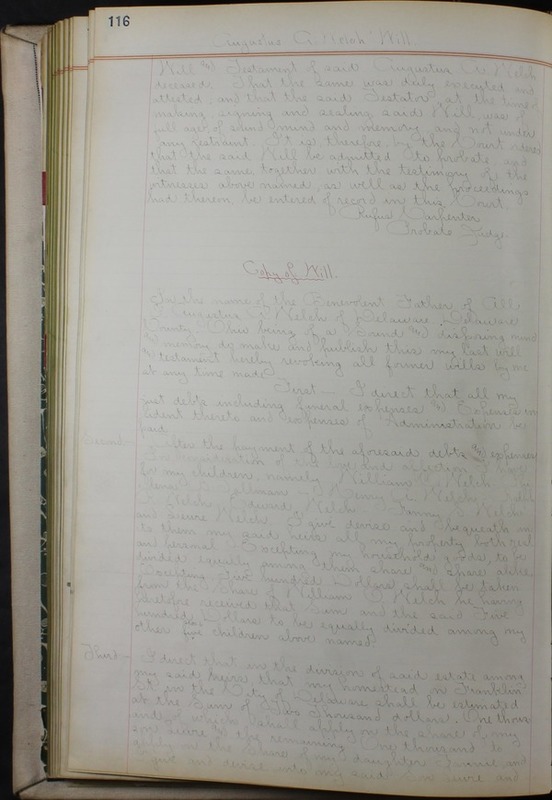 116
Augustus A. Welch Will.
Will and Testament of said Augustus A. Welch
deceased. That the same was duly executed and
attested, and that the said Testator, at the time of
making, signing and sealing said Will, was of
full age, of sound mind and memory, and not under
any restraint. It is, therefore, by the Court ordered
that the said Will be admitted to probate, and
that the same, together with the testimony of the
witnesses above named, as well as the proceedings
had therein, be entered of record in this Court.
Rufus Carpenter
Probate Judge.
Copy of Will.
In the name of the Benevolent Father of All
I Augustus A Welch of Delaware, Delaware
County Ohio being of a Sound and disposing mind
& memory do make and publish this my last Will
and testament hereby revoking all former wills by me
at any time made
First — I direct that all my
just debts including funeral expenses and Expenses in
cident thereto and expenses of Administration be
paid
Second — After the payment of the aforesaid debts and expenses
In consideration of the love and affection I have
for my children namely William Welch
Henry C. Welch
Welch Edward Welch Fanny Welch
and Welch I give devise and bequeath
to them my said heirs all my property both real
and personal Excepting my household goods to be
divided equally among them share and share alike
Excepting Five hundred Dollars shall be taken
from the Share of William Welch he having
heretofore received that Sum and the said Five
hundred Dollars to be equally divided among my
other five children above named
Third — I direct that in the division of said estate among
my said heirs that my homestead on Franklin
St in the City of Delaware shall be estimated
at the Sum of Two Thousand dollars. One thous
and of which shall apply on the share of my
son and the remaining One thousand to
apply on the Share of my daughter Fannie and
I give and devise unto my said and